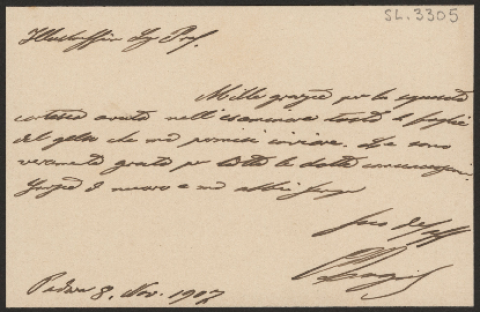 SL. 3305
Illustrissimo Sig Prof.
Mille grazie per la squisita
cortesia avuta nell'esaminare tosto le foglie
del gelso che mi permisi inviare. Le sono
veramente grato per tutte le dotte comunicazioni.
Grazie di nuovo e mi abbia sempre
Padova 8. Nov. 1907